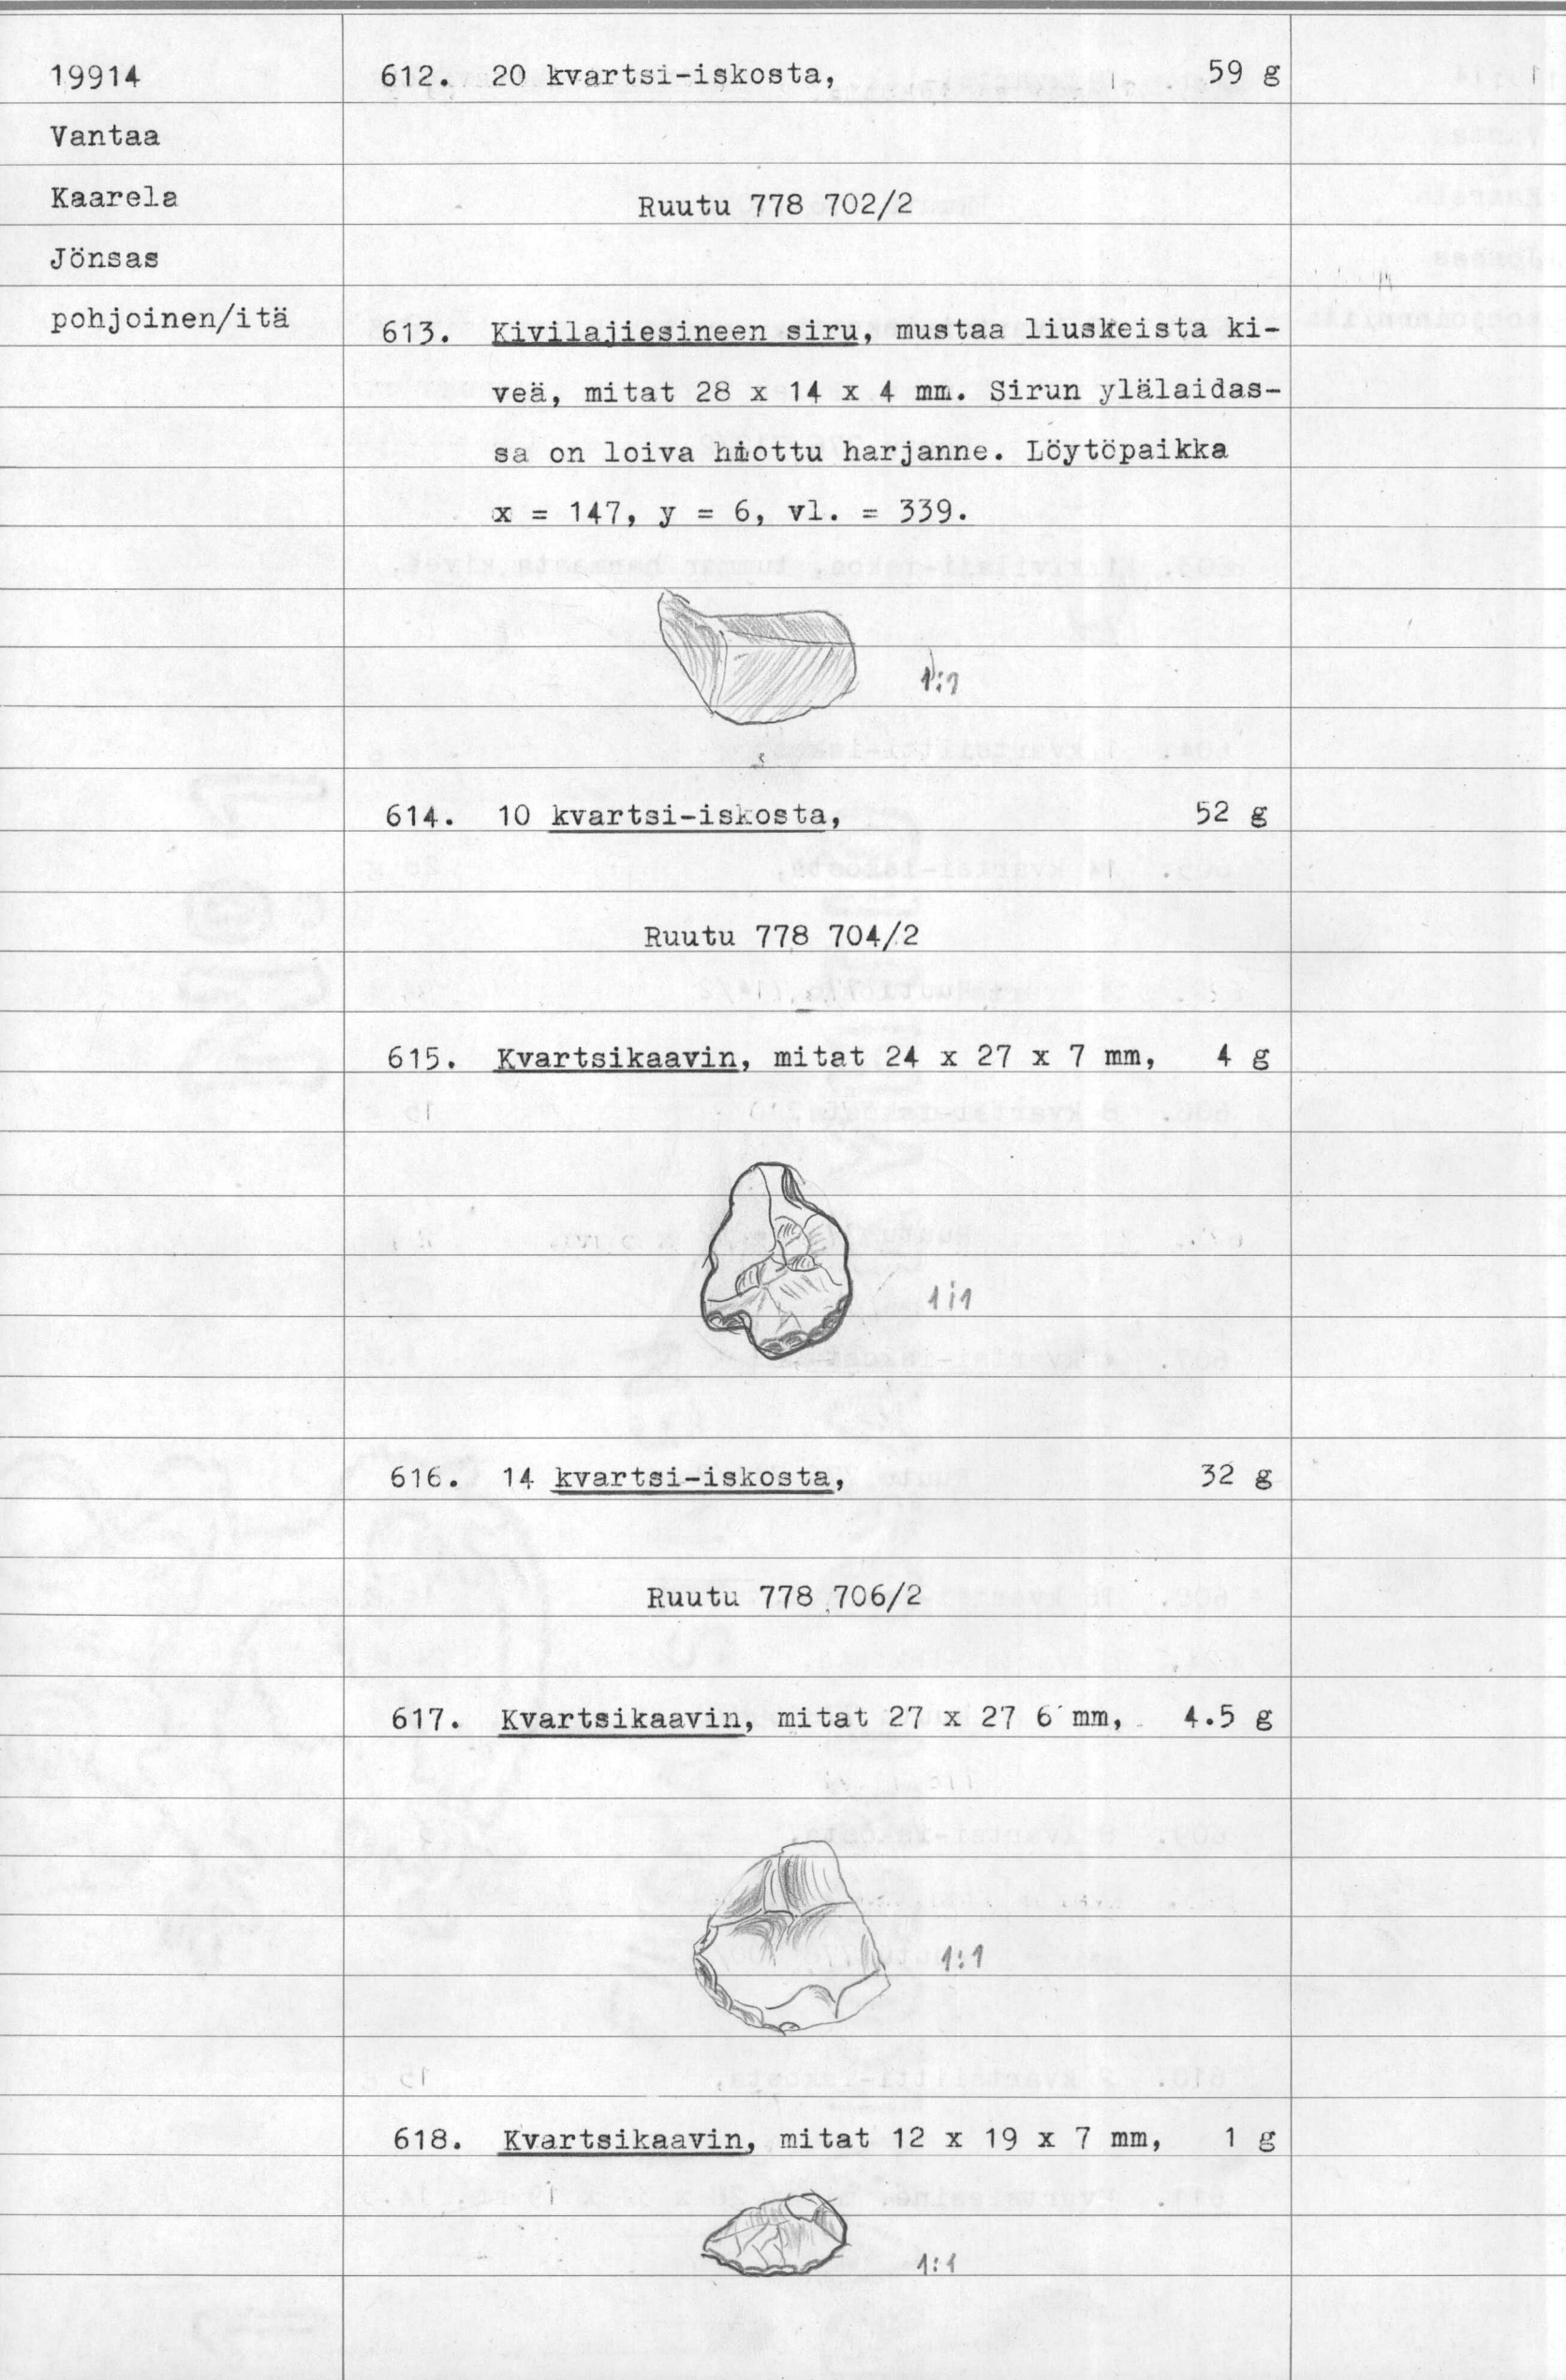 19914
Vantaa
Kaarela
Jönsas
pohjoinen/itä
612. 20 kvartsi-iskosta, 59 g
Ruutu 778 702/2
613. Kivilajiesineen siru, mustaa liuskeista ki-
veä, mitat 28 x 14 x 4 mm. Sirun ylälaidas-
sa on loiva hiottu harjanne. Löytöpaikka
x = 147, y = 6, vl. = 339.
1:1
614. 10 kvartsi-iskosta, 52 g
Ruutu 778 704/2
615. Kvartsikaavin, mitat 24 x 27 x 7 mm, 4 g
1:1
616. 14 kvartsi-iskosta, 32 g
Ruutu 778 706/2
617. Kvartsikaavin, mitat 27 x 27 6 mm, 4.5 g
1:1
618. Kvartsikaavin, mitat 12 x 19 x 7 mm, 1 g
1:1